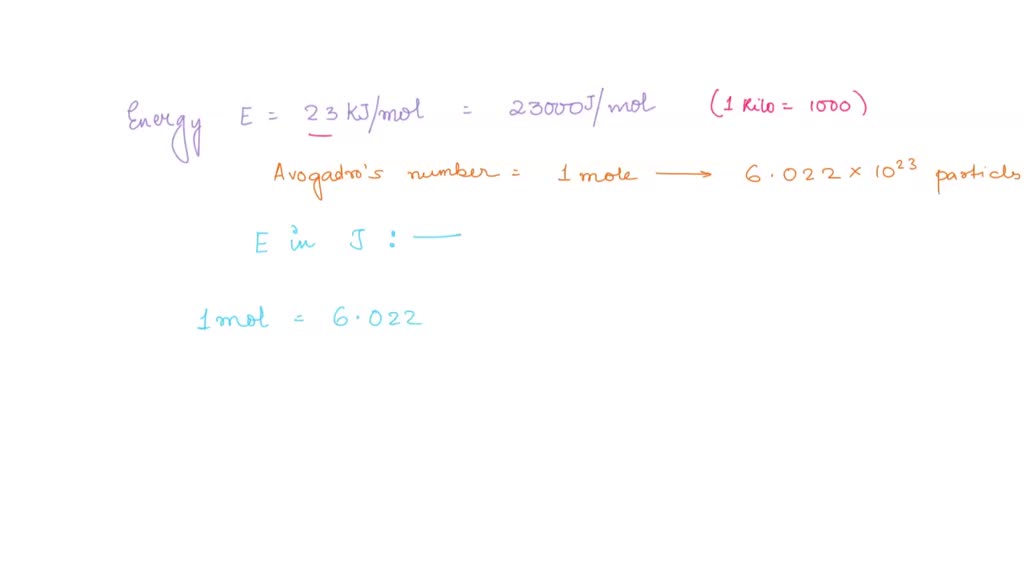 Energy E = 23 KJ/mol = 23000J/mol (1 Kilo = 1000)
Avogadro's number = 1 mole → 6.022 × 10²³ particls
E in J : —
1 mol = 6.022